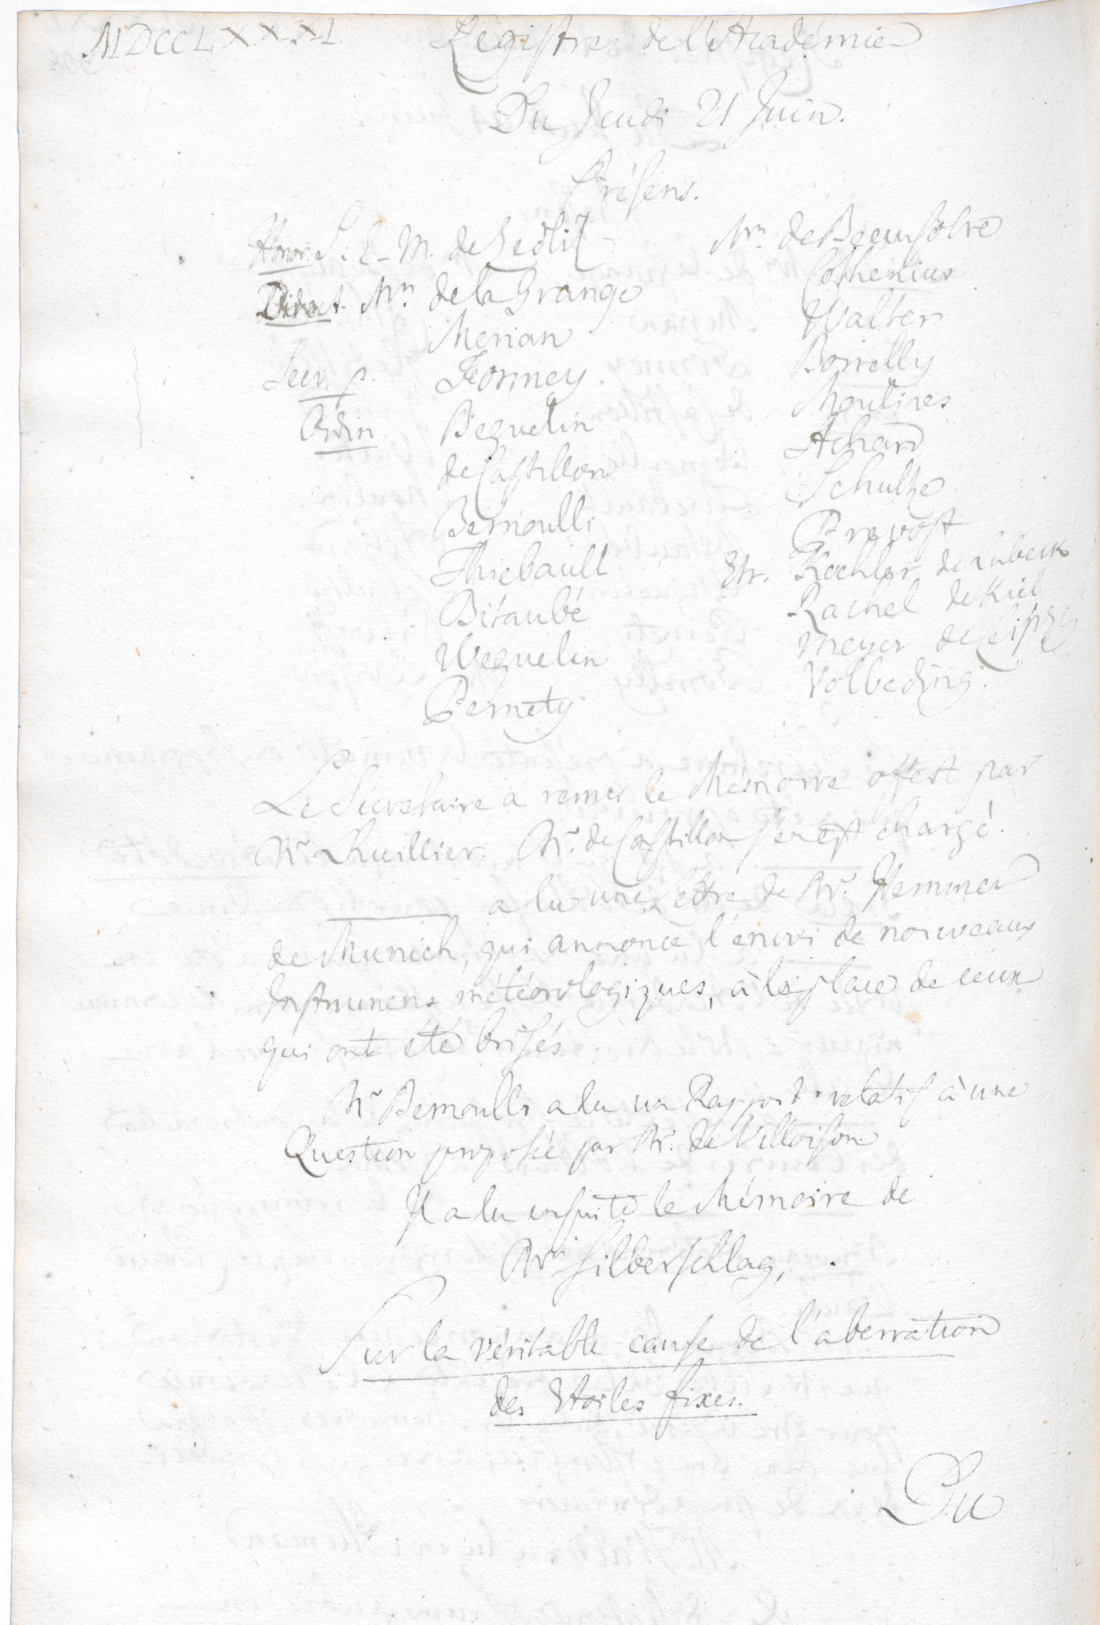 MDCCLXXXI Régistres de l'Académie
Du Jeudi 21 Juin.
Présens.
Honor. S. E. M. de Zedlitz
Direct. Mrs. de la Grange
Merian
Secr. p. Formey
Ordin Beguelin
de Castillon
Bernoulli
Thiebault
Bitaubé
Weguelin
Pernety
Mrs. de Beausobre
Cothenius
Walter
Borrelly
Moulines
Achard
Schultze
Prevost
Etr. Koehler de Lubeck
Rachel de Kiel
Meyer de Leipzig
Volbeding.
Le Sécretaire a remis le Mémoire offert par
Mr. Lhuillier. Mr. de Castillon s'en est chargé.
a lu une Lettre de Mr. Hemmer
de Munich, qui annonce l'envoi de nouveaux
Instrumens météorologiques, à la place de ceux
qui ont été brisés.
Mr. Bernoulli a lu un Rapport relatif à une
Question proposée par Mr. de Villoison
Il a lu ensuite le Mémoire de
Mr. Silberschlag,
Sur la véritable cause de l'aberration
des Etoiles fixes.
Du